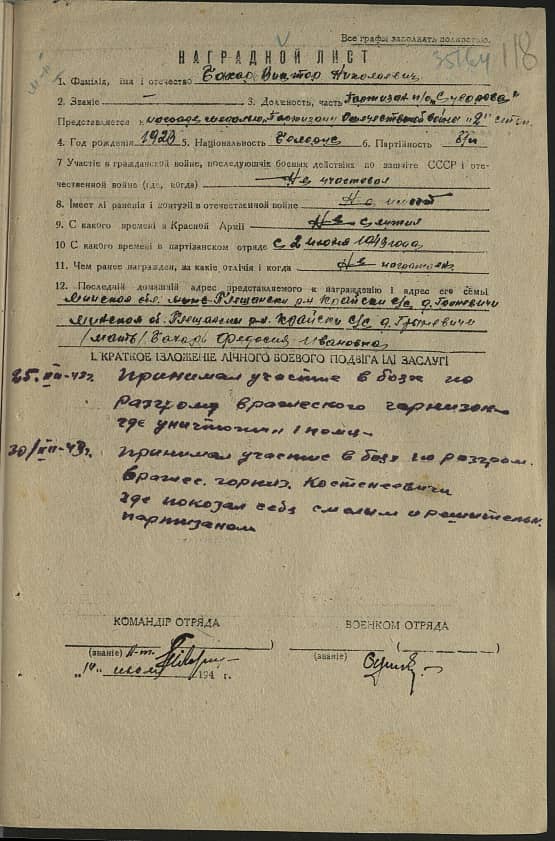 Все графы заполнять полностью.
35164 118
НАГРАДНОЙ ЛИСТ
1. Фамілія, імя і отчество Бахар Виктор Николаевич
2. Званіе — 3. Должность, часть Партизан п/о „Суворова"
Представляется к награде медалью „Партизан Отечественной войны „2" степ.
4. Год рождения 1923 5. Національность Белорус 6. Партійность б/п
7 Участіе в гражданской войне, последующіх боевых действіях по защіте СССР і оте-
чественной войне (где, когда) Не участвовал
8. Імеет лі раненія і контузіі в отечественной войне Не имеет
9. С какого временi в Красной Арміі Не служил
10 С какого времени в партизанском отряде с 2 июня 1943 года
11. Чем ранее награжден, за какие отлічія і когда Не награжден
12. Последній домашній адрес представляемого к награждению і адрес его семьі
Минская обл. Плещански р-н Крайски с/с д.
Минская об. Плещански р-н Крайски с/с д.
/мать/ Бахар Федосия Ивановна
І. КРАТКОЕ ІЗЛОЖЕНІЕ ЛІЧНОГО БОЕВОГО ПОДВІГА ІЛІ ЗАСЛУГІ
Принимал участие в боях по
разгрому вражеского гарнизон
где уничтожил 1 немц
Принимал участие в боях по разгром.
вражес. горниз. Костеневичи
где показал себя смелым и решительн.
партизаном
КОМАНДІР ОТРЯДА ВОЕНКОМ ОТРЯДА
(званіе) )
(званіе) )
194 г.